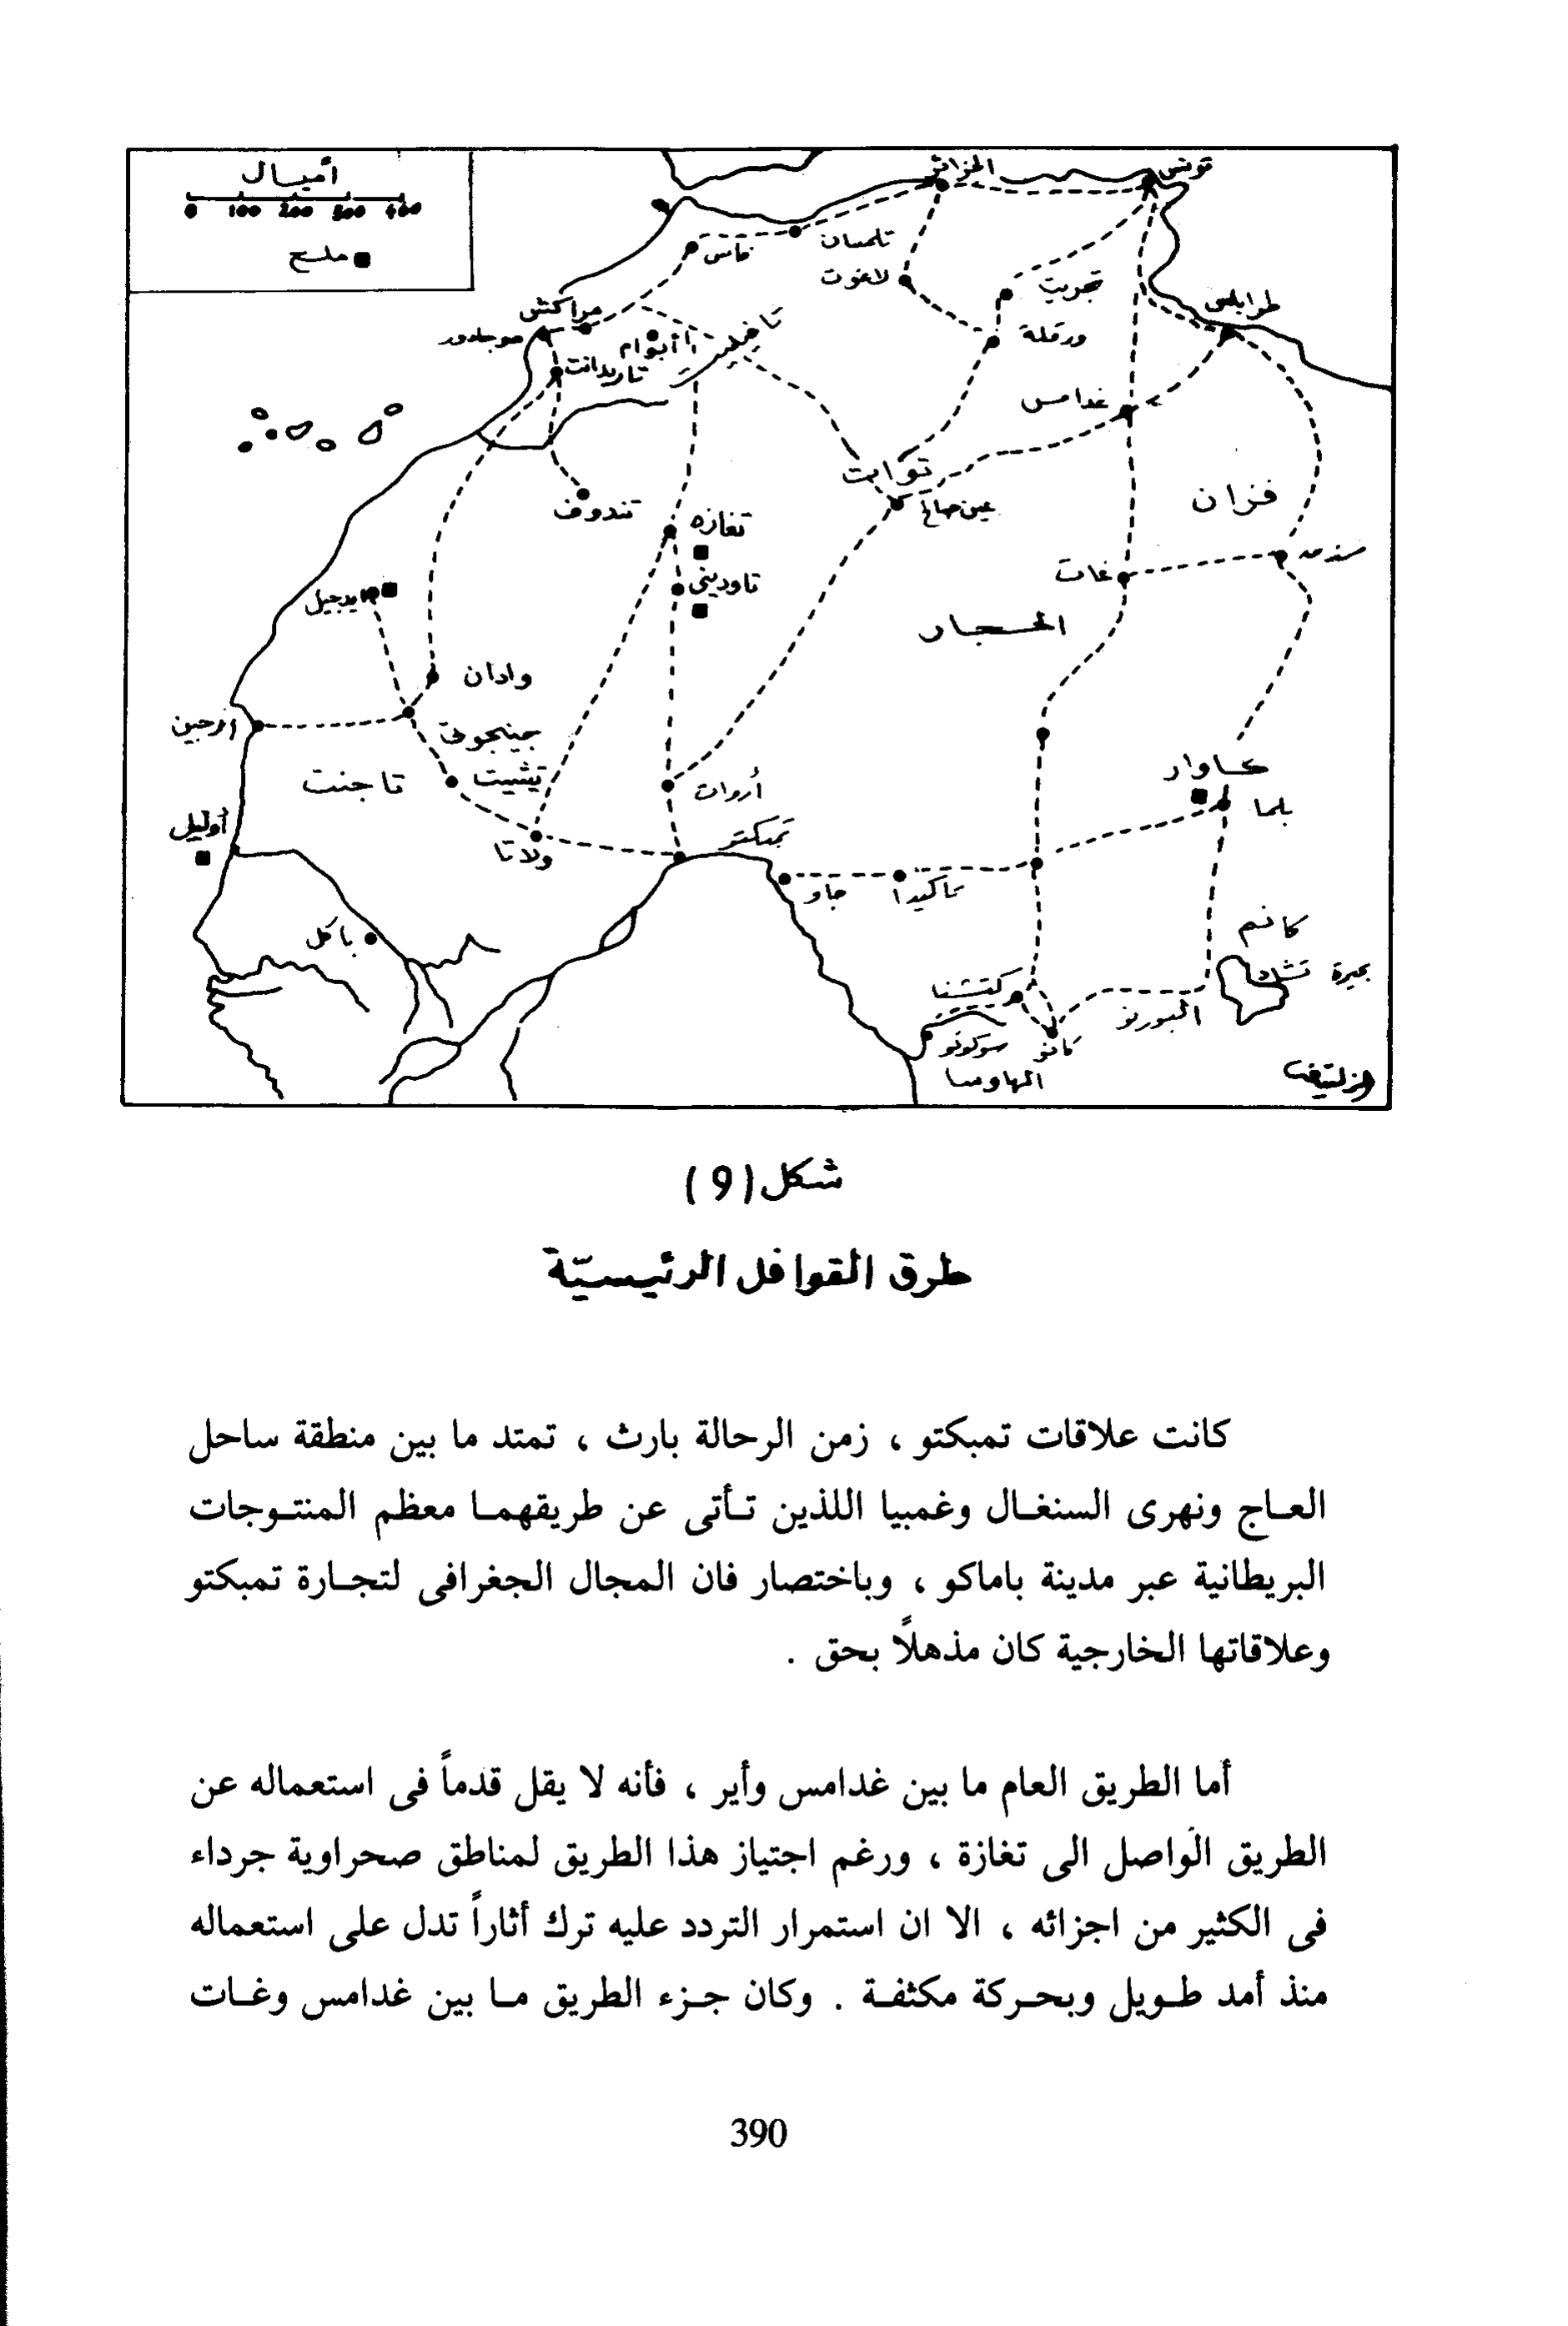 أميال
0 100 200 300 400
ملح
تونس
الجزائر
تلمسان
فاس
لاغوت
ورقلة
طرابلس
مراكش
موجادور
أبوام
تاريدانت
غدامس
توات
عين صالح
فزان
تندوف
تغازه
تاوديني
غات
الحجار
وادان
تيشيت
تاجنت
أروان
ولاتا
تمبكتو
أوليل
باكل
جاو
تاكيدا
كاوار
بلما
كانم
بحيرة تشاد
البورنو
كتشنا
كانو
سوكوتو
الهاوسا
شكل (9)
طرق القوافل الرئيسيّة
كانت علاقات تمبكتو ، زمن الرحالة بارث ، تمتد ما بين منطقة ساحل
العاج ونهرى السنغال وغمبيا اللذين تأتى عن طريقهما معظم المنتوجات
البريطانية عبر مدينة باماكو ، وباختصار فان المجال الجغرافى لتجارة تمبكتو
وعلاقاتها الخارجية كان مذهلاً بحق .
أما الطريق العام ما بين غدامس وأير ، فأنه لا يقل قدماً فى استعماله عن
الطريق الواصل الى تغازة ، ورغم اجتياز هذا الطريق لمناطق صحراوية جرداء
فى الكثير من اجزائه ، الا ان استمرار التردد عليه ترك أثاراً تدل على استعماله
منذ أمد طويل وبحركة مكثفة . وكان جزء الطريق ما بين غدامس وغات
390